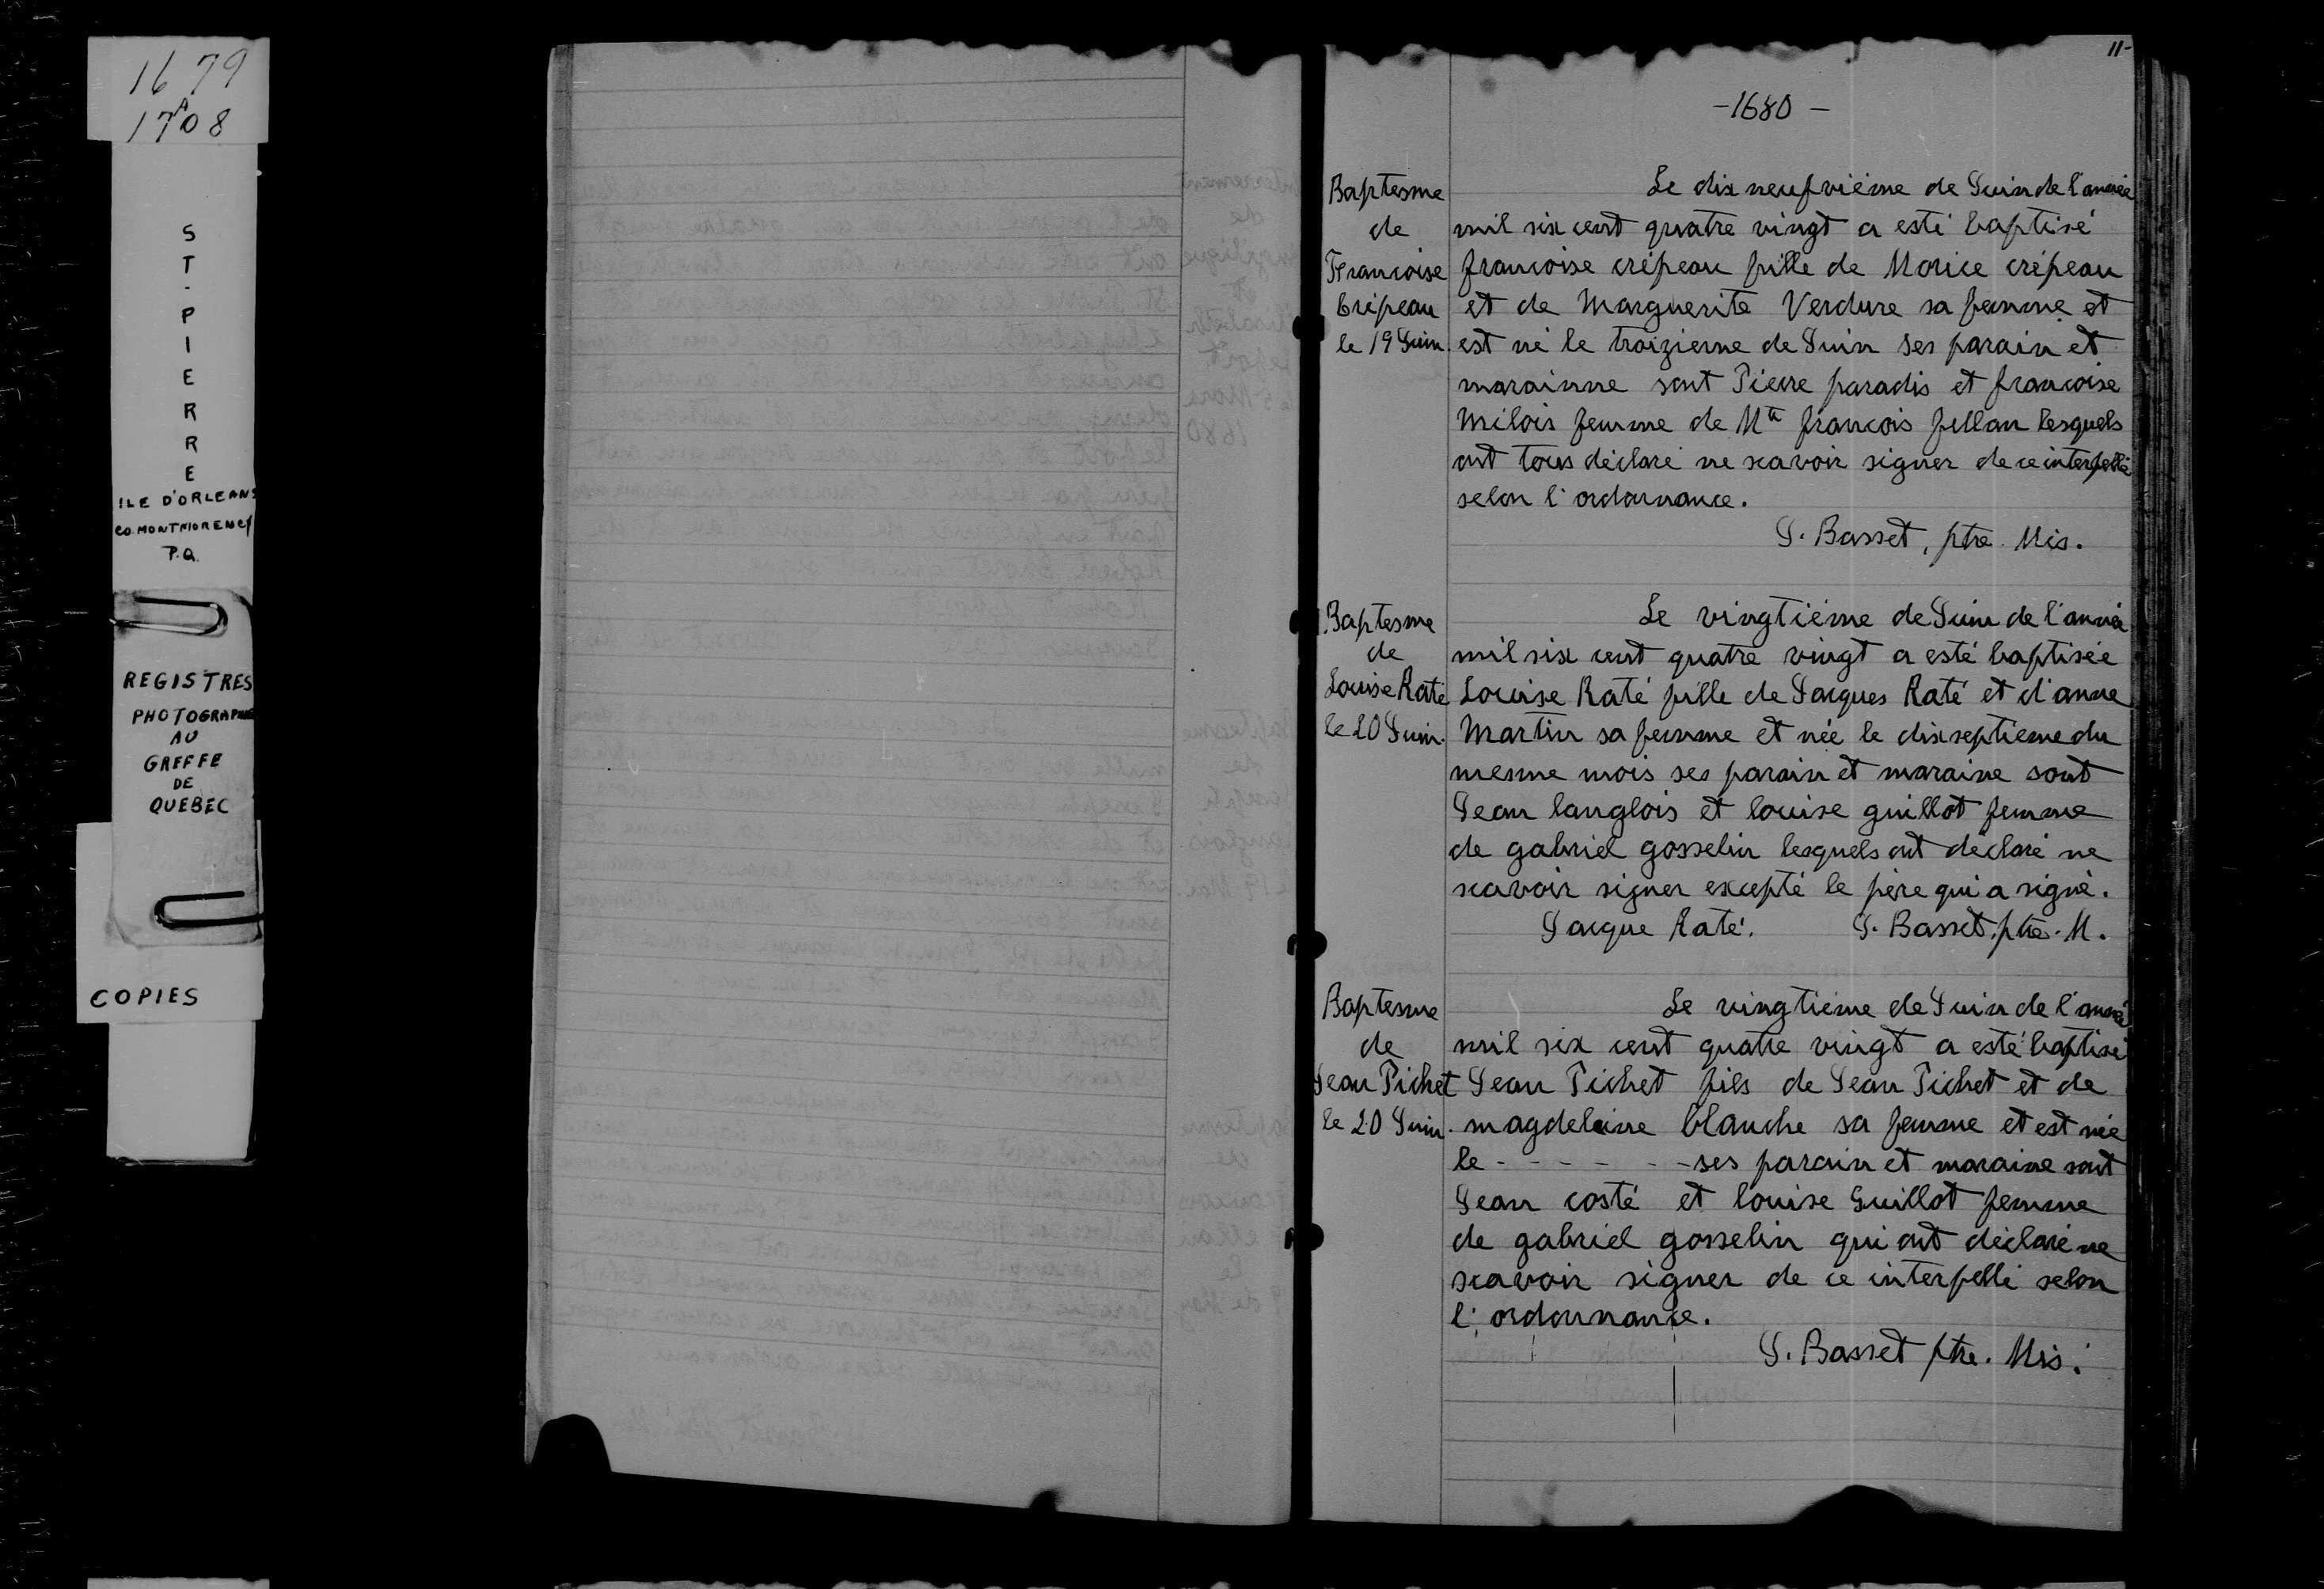 1679
A
1708
ST-PIERRE
ILE D'ORLEANS
CO. MONTMORENCY
P.Q.
REGISTRES
PHOTOGRAPHIE
AU
GREFFE
DE
QUEBEC
COPIES
11-
-1680-
Baptesme
de
Francoise
Crépeau
le 19 Juin.
Le dix neufvième de Juin de l'année
mil six cent quatre vingt a esté baptisé
francoise crépeau fille de Morice crépeau
et de Marguerite Verdure sa femme et
est né le troizieme de Juin ses parain et
marainne sont Pierre paradis et francoise
Milois femme de Mtr francois fellau lesquels
ont tous déclaré ne scavoir signer de ce interpellé
selon l'ordonnance.
J. Basset, ptre Mis.
Baptesme
de
Louise Raté
le 20 Juin.
Le vingtiéme de Juin de l'année
mil six cent quatre vingt a esté baptisée
Louise Raté fille de Jacques Raté et d'anne
Martin sa femme et née le dixseptieme du
mesme mois ses parain et maraine sont
Jean langlois et louise guillot femme
de gabriel gosselin lesquels ont déclaré ne
scavoir signer excepté le père qui a signé.
Jacque Raté. J. Basset. ptre. M.
Baptesme
de
Jean Pichet
le 20 Juin.
Le vingtième de Juin de l'année
mil six cent quatre vingt a esté baptisé
Jean Pichet fils de Jean Pichet et de
magdelaine blanche sa femme et est née
le - - - - - - ses parain et maraine sont
Jean costé et louise Guillot femme
de gabriel gosselin qui ont déclaré ne
scavoir signer de ce interpellé selon
l'ordonnance.
J. Basset ptre. Mis.